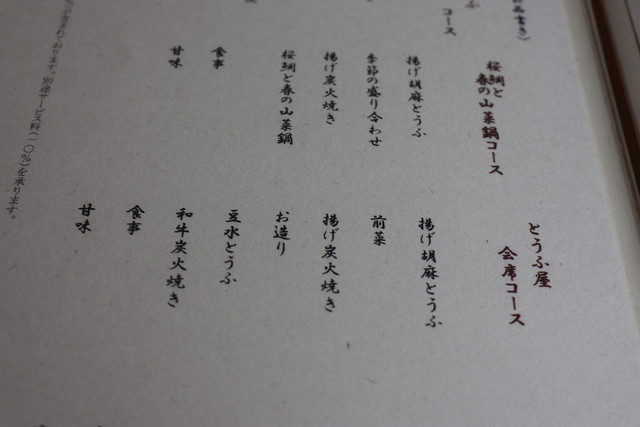 品書き〉
コース
桜鯛と
春の山菜鍋コース
揚げ胡麻とうふ
季節の盛り合わせ
揚げ炭火焼き
桜鯛と春の山菜鍋
食事
甘味
とうふ屋
会席コース
揚げ胡麻とうふ
前菜
揚げ炭火焼き
お造り
豆水とうふ
和牛炭火焼き
食事
甘味
が含まれております。別途サービス料(一〇%)を承ります。